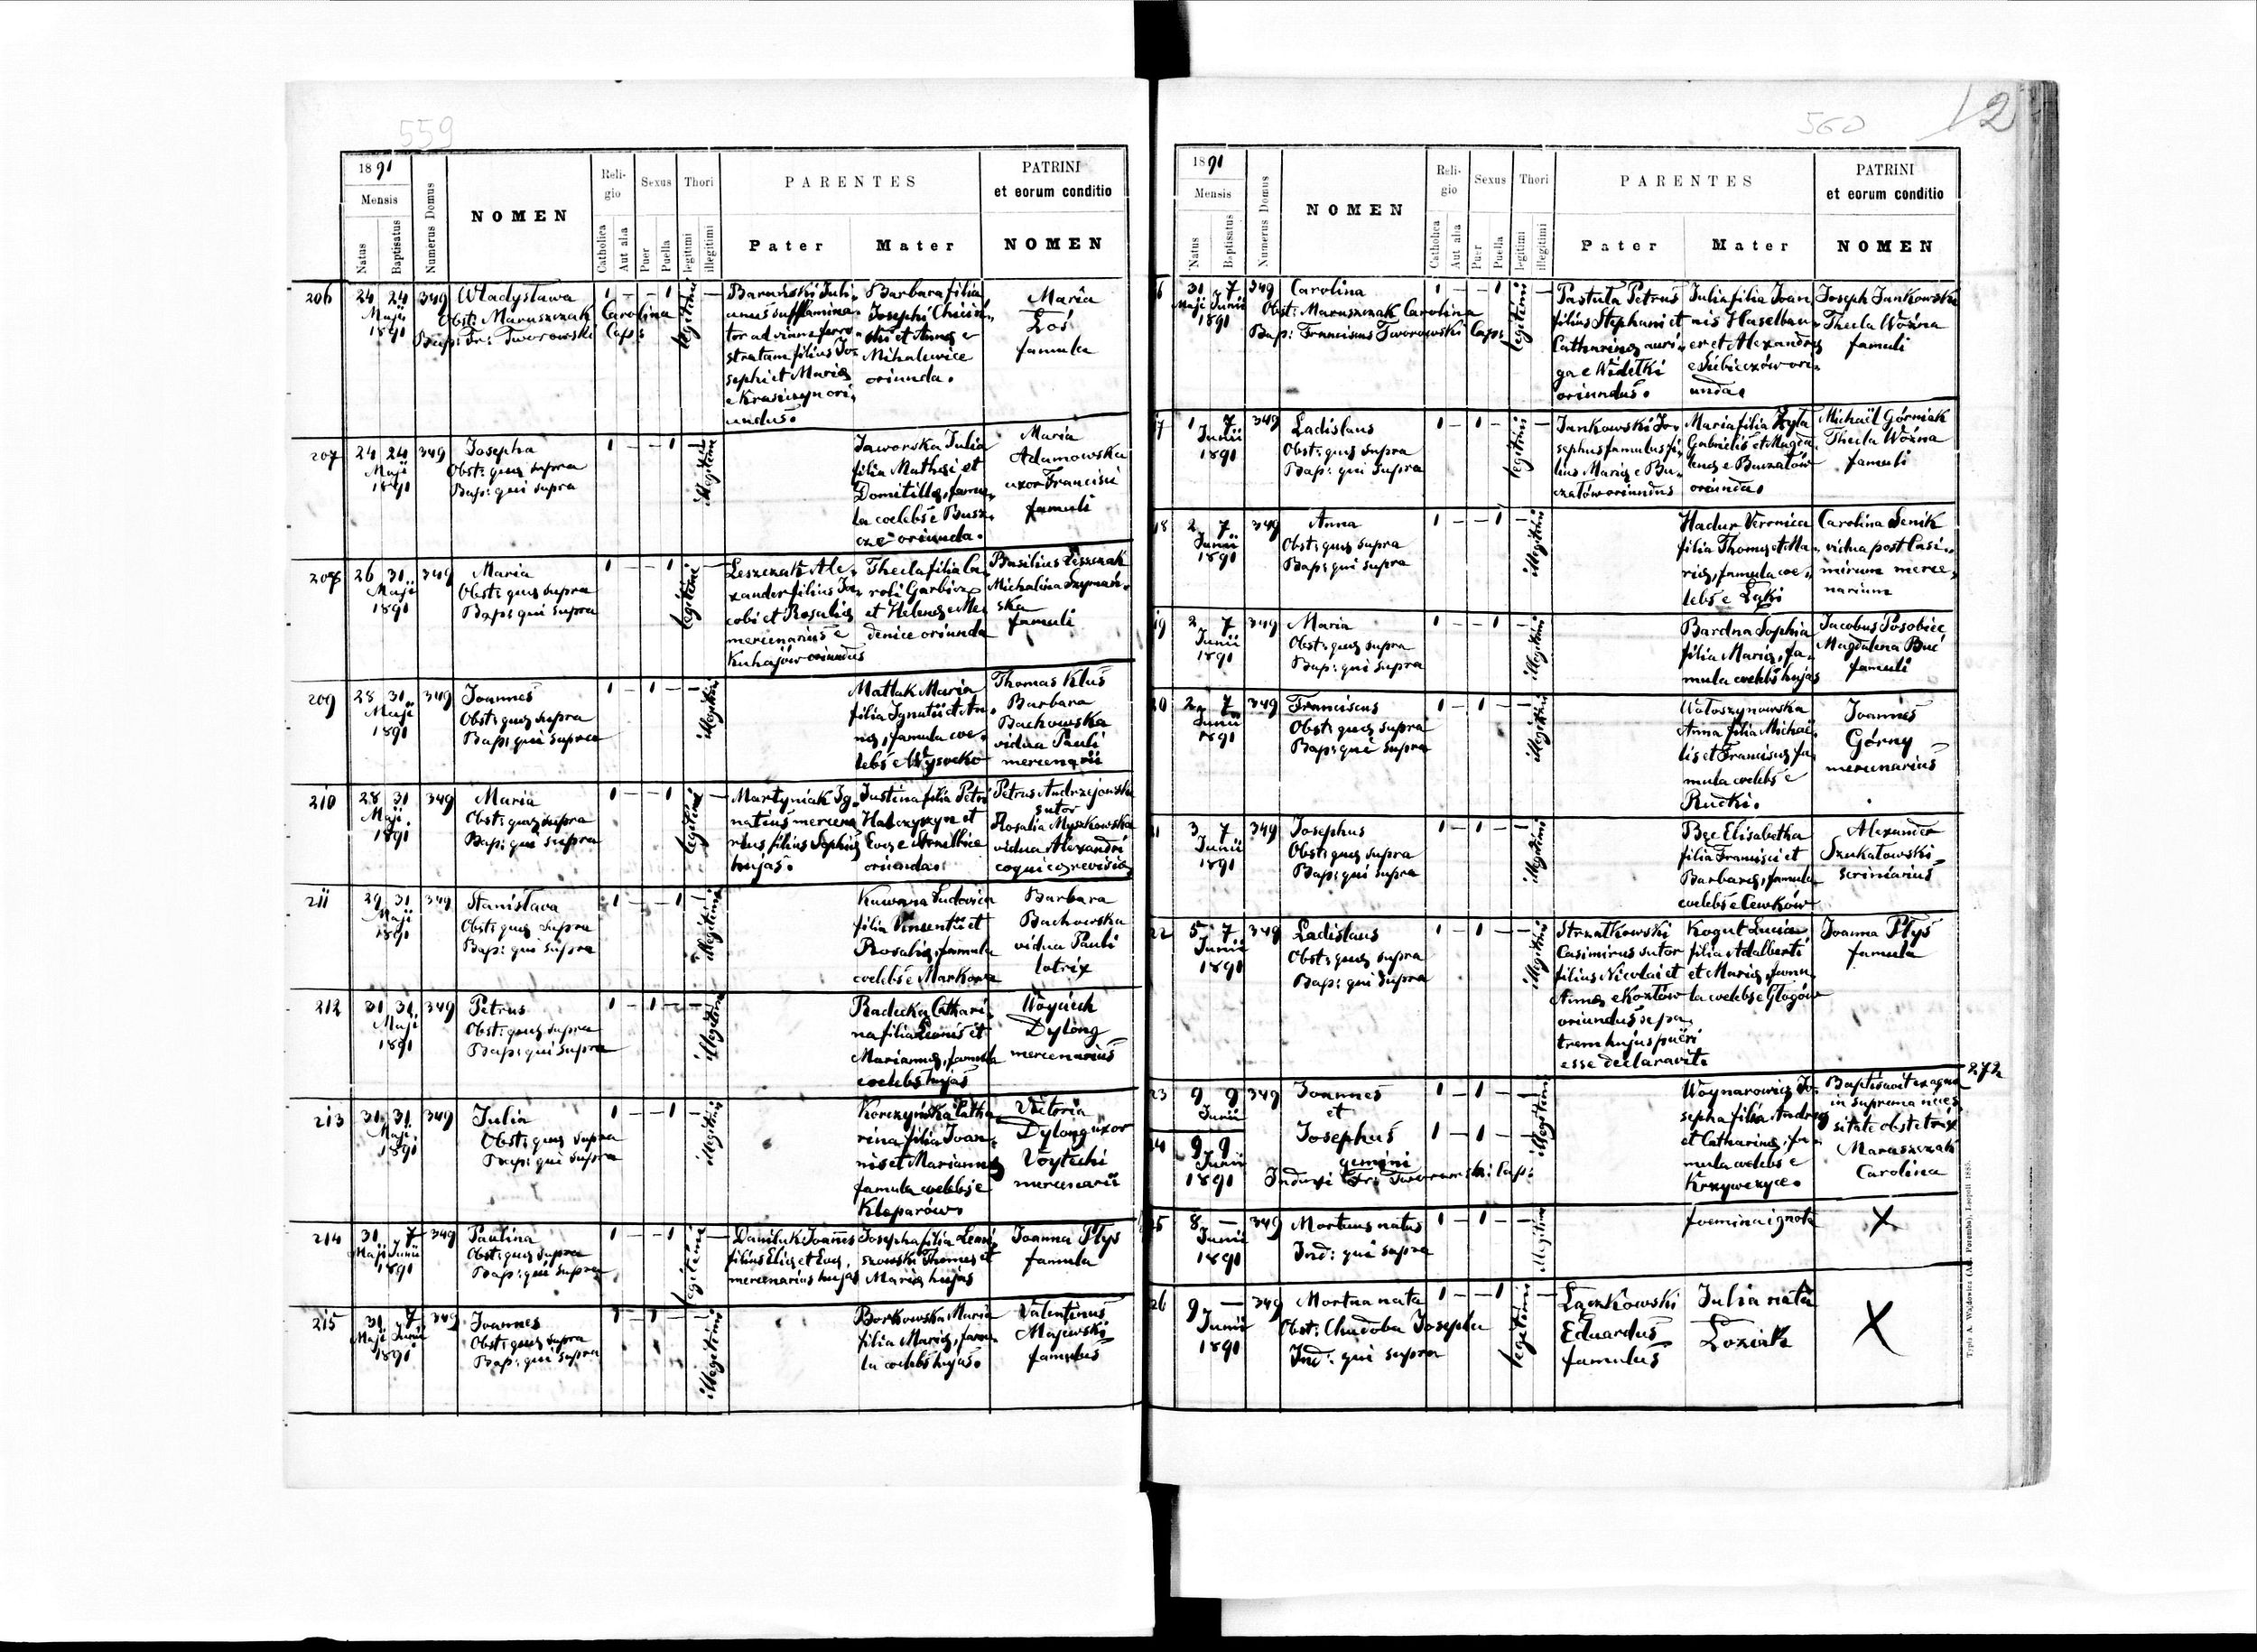 559
1891
Mensis
Natus
Baptisatus
Numerus Domus
NOMEN
Religio
Catholica
Aut alia
Sexus
Puer
Puella
Thori
legitimi
illegitimi
PARENTES
Pater
Mater
PATRINI
et eorum conditio
NOMEN
206
24 24
Maji
1891
349
Władysława
Obst: Maruszczak Carolina
Bap: Fr: Tworowski Cap:
1 – – 1
legitimi
Barański Juli-
anus sufflamina-
tor ad viam ferro-
stratam filius Jo-
sephi et Mariæ
e Krasiczyn ori-
undus.
Barbara filia
Josephi
et Annæ e
Mihalewice
oriunda.
Maria
Łoś
famula
207
24 24
Maji
1891
349
Josepha
Obst: quæ supra
Bap: qui supra
1 – – 1
illegitimi
Jaworska Julia
filia Mathæi et
Domitillæ, famu-
la coelebs e Busz-
cze oriunda.
Maria
Adamowska
uxor Francisci
famuli
208
26 31
Maji
1891
349
Maria
Obst: quæ supra
Bap: qui supra
1 – – 1
legitimi
Leszczak Ale-
xander filius Ja-
cobi et Rosaliæ
mercenarius e
Kuhajów oriundus
Thecla filia Ca-
roli Garbicz
et Helenæ e Me-
denice oriunda
Basilius Leszczak
Michalina Szymań-
ska
famuli
209
28 31
Maji
1891
349
Joannes
Obst: quæ supra
Bap: qui supra
1 – 1 –
illegitimi
Matlak Maria
filia Ignatii et An-
næ, famula coe-
lebs e Wysocko
Thomas Klus
Barbara
Bachowska
vidua Pauli
mercenarii
210
28 31
Maji
1891
349
Maria
Obst: quæ supra
Bap: qui supra
1 – – 1
legitimi
Martyniak Ig-
natius mercena-
rius filius Sophiæ
hujas.
Justina filia Petri
Halczyszyn et
Evæ e
oriunda.
Petrus Andrzejowski
sutor
Rosalia Myszkowska
vidua Alexandri
211
29 31
Maji
1891
349
Stanislava
Obst: quæ supra
Bap: qui supra
1 – – 1
illegitimi
Kuwara Ludovica
filia Vincentii et
Rosaliæ, famula
coelebs e Markowa
Barbara
Bachowska
vidua Pauli
lotrix
212
31 31
Maji
1891
349
Petrus
Obst: quæ supra
Bap: qui supra
1 – 1 –
illegitimi
Radecka Cathari-
na filia Leonis et
Mariannæ, famula
coelebs hujas
Woyciech
Dylong
mercenarius
213
31 31
Maji
1891
349
Julia
Obst: quæ supra
Bap: qui supra
1 – – 1
illegitimi
Korczyńska Catha-
rina filia Joan-
nis et Mariannæ
famula coelebs e
Kleparów.
Victoria
Dylong uxor
Voytechi
mercenarii
214
31 7
Maji Junii
1891
349
Paulina
Obst: quæ supra
Bap: qui supra
1 – – 1
legitimi
Daniluk Joannes
filius Eliæ et Evæ,
mercenarius hujas
Josepha filia
Thomæ et
Mariæ hujas
Joanna Płyś
famula
215
31 7
Maji Junii
1891
349
Joannes
Obst: quæ supra
Bap: qui supra
1 – 1 –
illegitimi
Borkowska Maria
filia Mariæ, famu-
la coelebs hujas.
Valentinus
Majewski
famulus
560
12
1891
Mensis
Natus
Baptisatus
Numerus Domus
NOMEN
Religio
Catholica
Aut alia
Sexus
Puer
Puella
Thori
legitimi
illegitimi
PARENTES
Pater
Mater
PATRINI
et eorum conditio
NOMEN
6
31 7
Maji Junii
1891
349
Carolina
Obst: Maruszczak Carolina
Bap: Franciscus Tworowski Cap:
1 – – 1
legitimi
Pastuła Petrus
filius Stephani et
Catharinæ auri-
ga e Widełki
oriundus.
Julia filia Joan-
nis Haselbau-
er et Alexandræ
e Lubieczów ori-
unda.
Joseph Jankowski
Thecla Woźna
famuli
7
1 7
Junii
1891
349
Ladislaus
Obst: quæ supra
Bap: qui supra
1 – 1 –
legitimi
Jankowski Jo-
sephus famulus fi-
lius Mariæ e Bu-
czałów oriundus
Maria filia Zyła
Gabrielis et Magda-
lenæ e Buczałów
oriunda.
Michaël Górniak
Thecla Woźna
famuli
18
2 7
Junii
1891
349
Anna
Obst: quæ supra
Bap: qui supra
1 – – 1
illegitimi
Hadur Veronica
filia Thomæ et Ma-
riæ, famula coe-
lebs e Łąki
Carolina Senik
vidua post Casi-
mirum merce-
narium
19
2 7
Junii
1891
349
Maria
Obst: quæ supra
Bap: qui supra
1 – – 1
illegitimi
Bardna Sophia
filia Mariæ, fa-
mula coelebs hujas
Jacobus Posobiec
Magdalena Buć
famuli
20
2 7
Junii
1891
349
Franciscus
Obst: quæ supra
Bap: qui supra
1 – 1 –
illegitimi
Wołoszynowska
Anna filia Michaë-
lis et Franciscæ fa-
mula coelebs e
Rudki.
Joannes
Górny
mercenarius
21
3 7
Junii
1891
349
Josephus
Obst: quæ supra
Bap: qui supra
1 – 1 –
illegitimi
Bęc Elisabetha
filia Francisci et
Barbaræ, famula
coelebs e Cewków
Alexander
Szukatowski
scriniarius
22
5 7
Junii
1891
349
Ladislaus
Obst: quæ supra
Bap: qui supra
1 – 1 –
illegitimi
Strzałkowski
Casimirus sutor
filius Nicolai et
Annæ e Kozłów
oriundus se pa-
trem hujus pueri
esse declaravit.
Kogut Lucia
filia Adalberti
et Mariæ, famu-
la coelebs e Głogów
Joanna Płyś
famula
23
9 9
Junii
349
Joannes
et
1 – 1 –
24
9 9
Junii
1891
Josephus
gemini
Induxi Fr: Tworowski Cap:
1 – 1 –
illegitimi
Woynarowicz Jo-
sepha filia Andreæ
et Catharinæ, fa-
mula coelebs e
Krzywczyce.
Baptisavit ex aqua
in suprema neces-
sitate obstetrix
Maruszczak
Carolina
272
25
8 –
Junii
1891
349
Mortuus natus
Ind: qui supra
1 – 1 –
illegitimi
foemina ignota
X
26
9 –
Junii
1891
349
Mortua nata
Obst: Chudoba Josepha
Ind: qui supra
1 – – 1
legitimi
Łączkowski
Eduardus
famulus
Julia nata
Łoziak
X
Typis A. Wajdowicz (Ad. Poremba), Leopoli 1885.